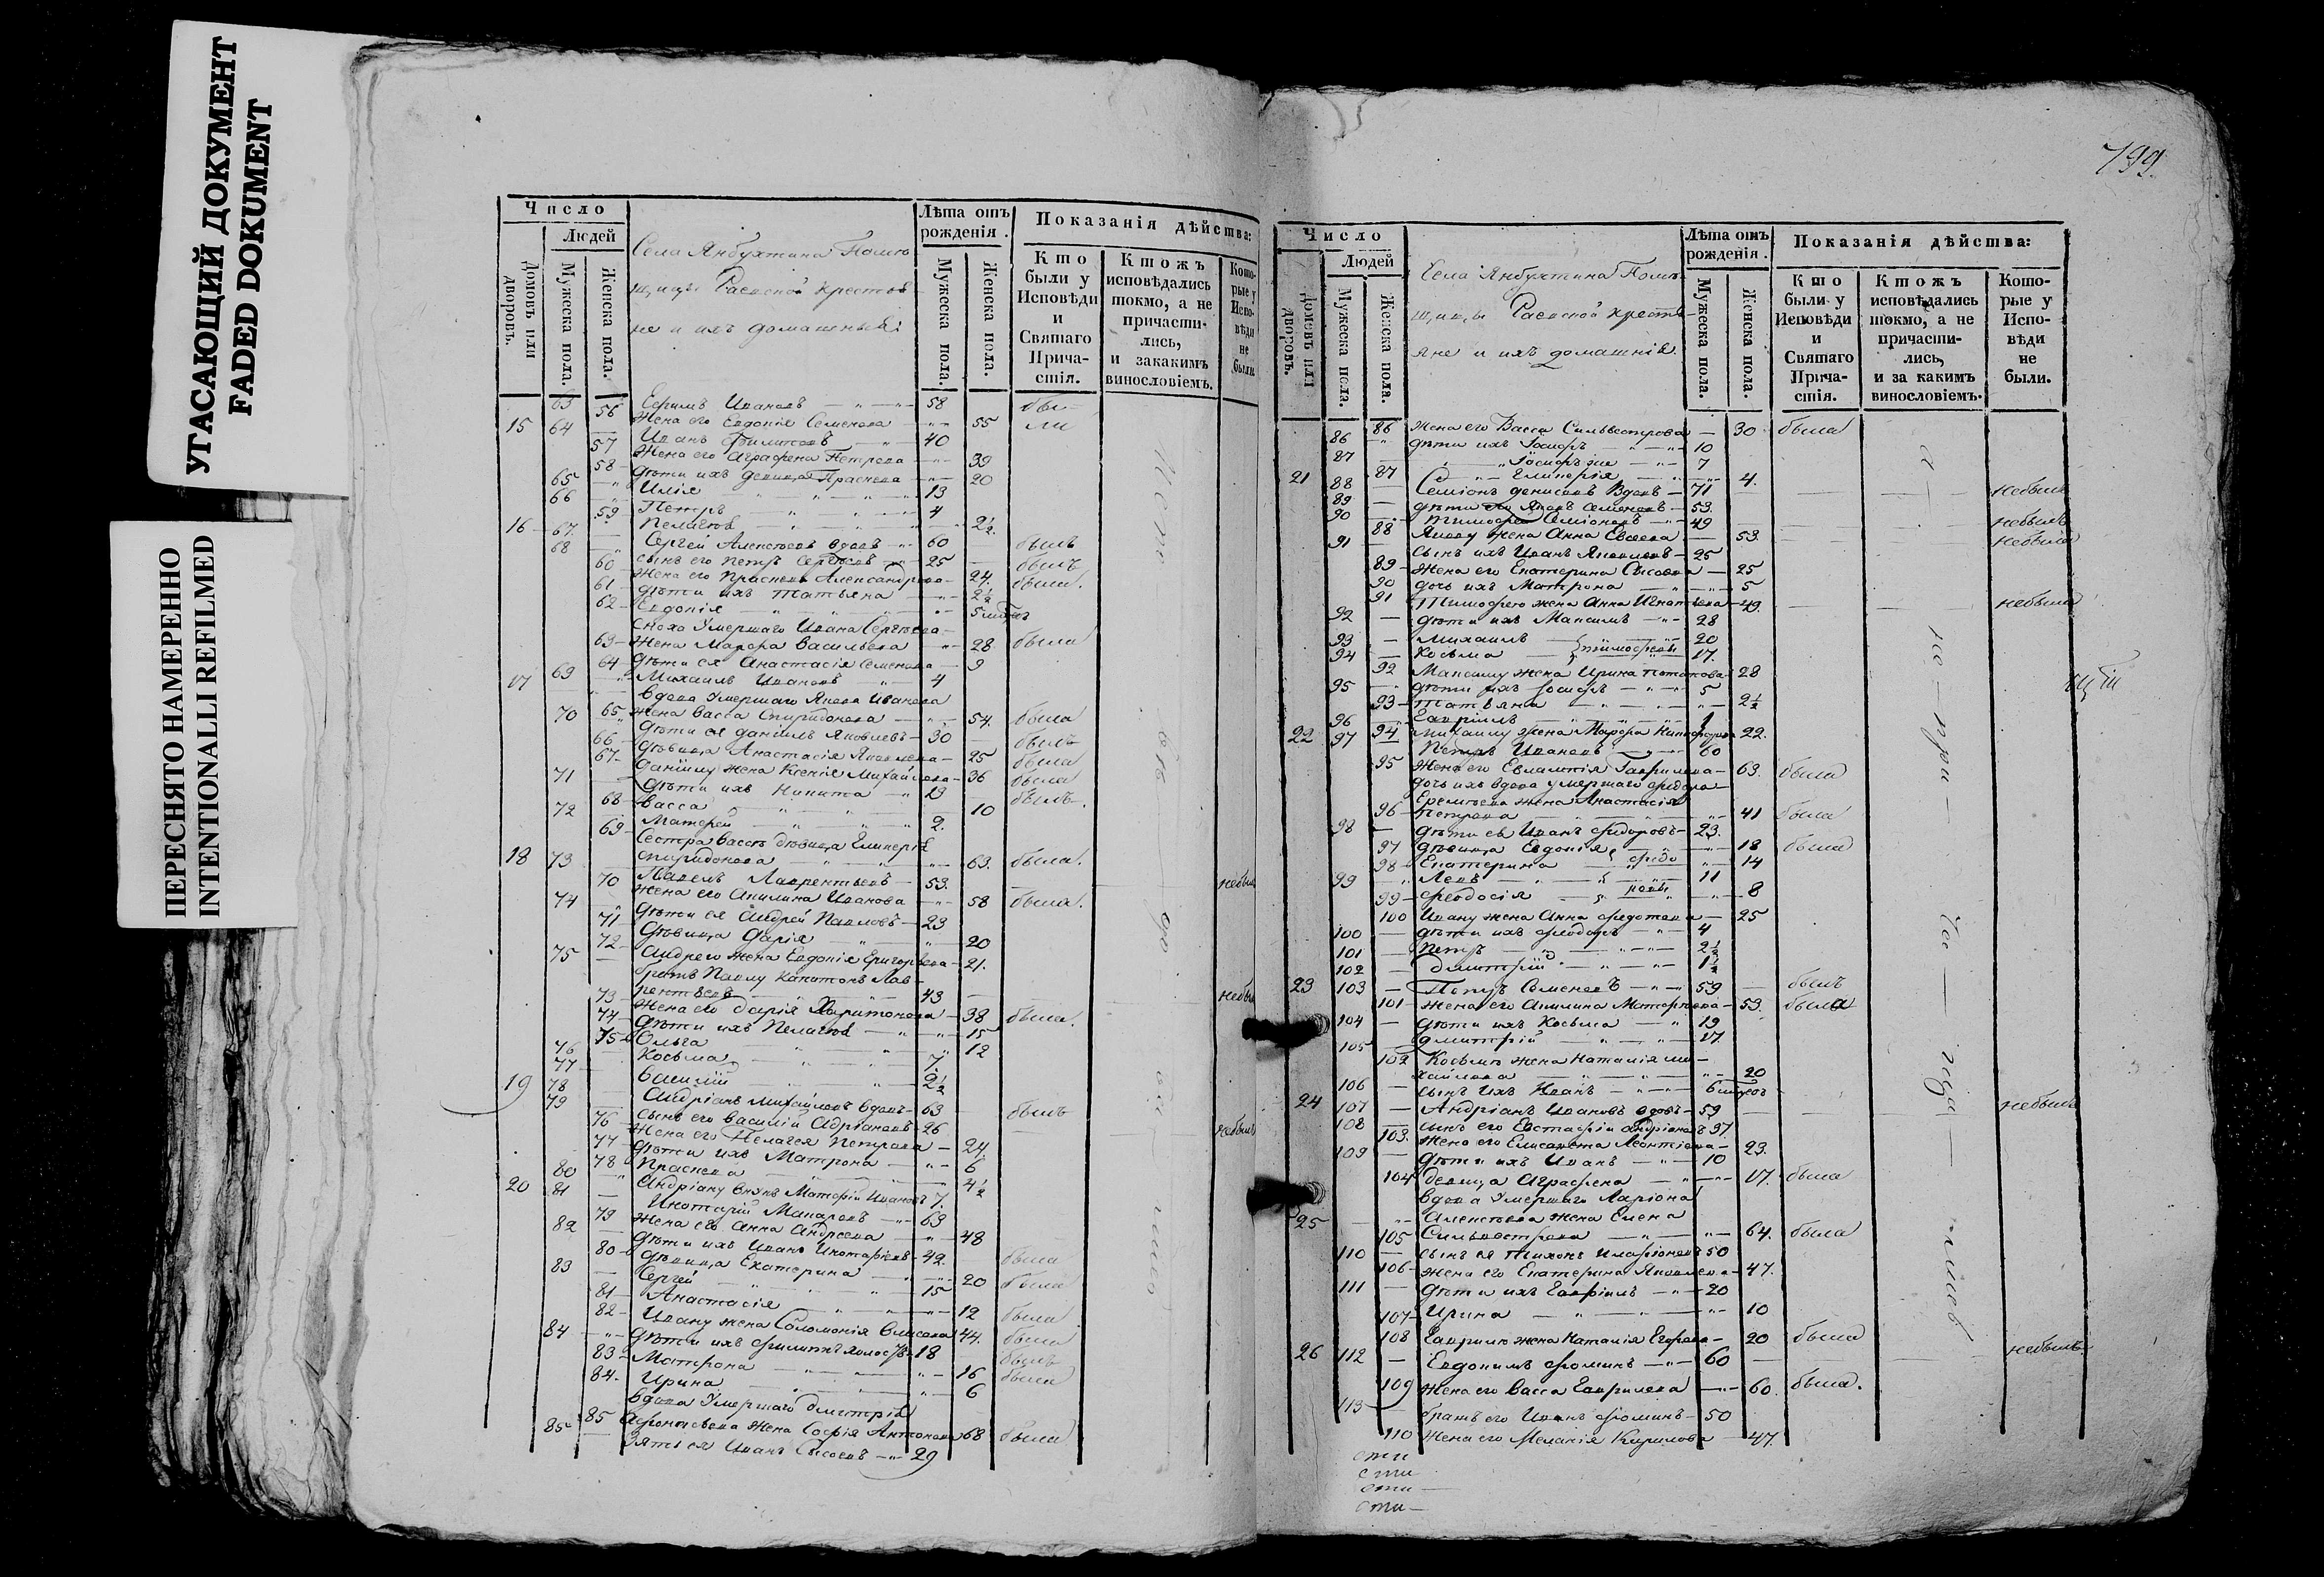 УГАСАЮЩИЙ ДОКУМЕНТ
FADED DOKUMENT
ПЕРЕСНЯТО НАМЕРЕННО
INTENTIONALLI REFILMED
Число
Людей
Домовъ или дворовъ.
Мужеска пола.
Женска пола.
Села Янбухтина Помѣ
щицы Раевской крестья
не и ихъ домашныѣ
Лѣта отъ рожденія.
Мужеска пола.
Женска пола.
Показанія дѣйства:
Кто были у Исповѣди и Святаго Причастія.
Ктожъ исповѣдались токмо, а не причастились, и закакимъ винословіемъ.
Которые у Исповѣди не были
63 Ефимъ Ивановъ 58 бы-
56 Жена его Евдокія Семенова 55 ли
15 64 Иванъ Филиповъ 40
57 Жена его Аграфена Петрова 39
58 дѣти ихъ девица Прасковa 20
65 Илія 13
66 Петръ 4
59 Пелагея 2½
16 67 Сергей Алексѣевъ вдовъ 60 былъ
68 сынъ его Петръ Сергѣевъ 25 былъ
60 Жена его Прасковa Александрова 24 была.
61 дѣти ихъ Татьяна 2½
62 Евдокія 5
Сноха Умершаго Ивана Сергѣева
63 Жена Марфа Васильева 28 была
64 дѣти ея Анастасія Семенова 9
69 Михаилъ Ивановъ 4
17 Вдова Умершаго Якова Иванова
65 Жена Васса Спиридонова 54. была
70 дѣти ея Даніилъ Яковлевъ 30 былъ
66 дѣвица Анастасія Яковлева 25 была
67 Даніилу жена Ксенія Михайлова 36 была
71 дѣти ихъ Никита 13 былъ
68 Васса 10
72 Матфей 2.
69 Сестра Вассѣ дѣвица Гликерія
Спиридонова 63. была.
18 73 Павелъ Лаврентьевъ 53. небылъ
70 Жена его Акилина Иванова 58 была.
74 дѣти ея Андрей Павловъ 23
71 дѣвица Дарія 20
72 Андрею жена Евдокія Григорьева 21.
75 братъ Павлу Капитонъ Лав-
рентьевъ 43 небы
73 Жена его Дарія Харитонова 38 была.
74 дѣти ихъ Пелагея 15
75 Ольга 12
76 Косьма 7.
77 Василій 2½
19 78 Андріанъ Михайловъ вдовъ 63 былъ
79 сынъ его Василій Адріановъ 26 небылъ
76 Жена его Пелагея Петрова 24.
77 дѣти ихъ Матрона 6
78 Прасковa 4½
80 Андріану внукъ Матфій Ивановъ 7.
20 81 Макаровъ 63
79 Жена его Анна Андреева 48
82 дѣти ихъ Иванъ 42. была
80 дѣвица Екатерина 20 была
83 Сергей 15
81 Анастасія 12 была
82 Ивану жена Соломонія 44. была
84 дѣти ихъ Филиппъ холостъ 18 былъ
83 Матрона 16 была
84. Ирина 6
Вдова Умершаго Дмитрія
85 Афонасьева Жена Софія Антонова 68 была
85 Зять ея Иванъ Сысоевъ 29
799.
Число
Людей
Домовъ или дворовъ.
Мужеска пола.
Женска пола.
Села Янбухтина Помѣ-
щицы Раевской крестья-
яне и ихъ домашніѣ
Лѣта отъ рожденія.
Мужеска пола.
Женска пола.
Показанія дѣйства:
Кто были у Исповѣди и Святаго Причастія.
Ктожъ исповѣдались токмо, а не причастились, и за какимъ винословіемъ.
Которые у Исповѣди не были.
86 Жена его Васса Сильвестрова 30 была
86 дѣти ихъ Іосифъ 10
87 Іосифъ же 7
87 Гликерія 4.
21 88 Семіонъ Денисовъ Вдовъ 71 небылъ
89 дѣти его Яковъ Семеновъ 53.
90 Тимофей Семіоновъ 49 небылъ
88 Якову жена Анна Евсеева 53 небыла
91 сынъ ихъ Иванъ Яковлевъ 25
89 Жена его Екатерина Сысоева 25
90 дочь ихъ Матрона 5
91 Тимофею жена Анна Игнатьева 49. небыла
92 дѣти ихъ Максимъ 28
93 Михаилъ 20
94 Косьма Тимофеевы 17.
92 Максиму жена Ирина Потапова 28
95 дѣти ихъ Іосифъ 5
93 Татьяна 2½
96 Гавріилъ 1
94 Михаилу жена Марфа Никифорова 22.
22 97 Петръ Ивановъ 60
95 Жена его Евлампія Гаврилова 63. была
дочь ихъ вдова умершаго Федора
Еремѣева жена Анастасія
96 Петрова 41 была
98 дѣти ея Иванъ Федоровъ 23.
97 дѣвица Евдокія 18 была
98 Екатерина 14
99 Левъ 11
99 Феодосія 8
100 Ивану жена Анна Федотова 25
100 дѣти ихъ Феодоръ 4
101 Петръ 2½
102 Дмитрій 1½
23 103 Петръ Семеновъ 59 былъ
101 жена его Акилина Матфеева 53. была
104 дѣти ихъ Косьма 19
105 Дмитрій 17.
102 Косьмѣ жена Наталія Ми-
хайлова 20
106 сынъ ихъ Иванъ 6
24 107 Андріанъ Ивановъ вдовъ 59 небылъ
108 сынъ его Евстафій Андріановъ 37.
103. Жена его Елисавета Леонтіева 23.
109 дѣти ихъ Иванъ 10
104 девица Аграфена 17. была
Вдова Умершаго Ларіона
25 Алексѣева жена Елена
105 Сильвестрова 64. была
110 сынъ ея Тихонъ Иларіоновъ 50
106 жена его Екатерина Яковлева 47.
111 дѣти ихъ Гавріилъ 20
107 Ирина 10
108 Гаврилѣ жена Наталія Егорова 20 была
26 112 Евдокимъ Фоминъ 60 небылъ.
109 Жена его Васса Гаврилова 60. была.
113 братъ его Иванъ Фоминъ 50
110 Жена его Меланія Кирилова 47.
сти
сти
сти
сти